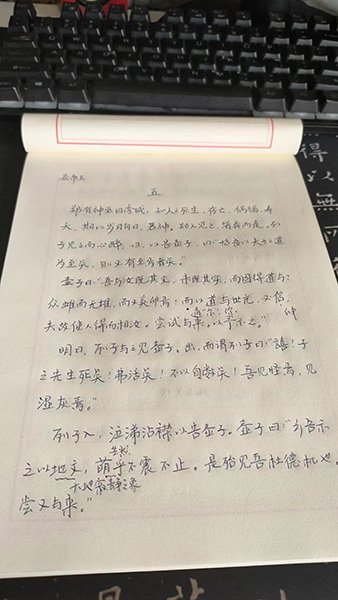 应帝王
五
郑有神巫曰季咸，知人之死生、存亡、祸福、寿
夭，期以岁月旬日，若神。郑人见之，皆弃而走。列
子见之而心醉，归，以告壶子，曰："始吾以夫子之道
为至矣，则又有至焉者矣。"
壶子曰："吾与汝既其文，未既其实，而固得道与？
众雌而无雄，而又奚卵焉！而以道与世亢，必信，
夫故使人得而相汝。尝试与来，以予示之。"
明日，列子与之见壶子。出，而谓列子曰："嘻！子
之先生死矣！弗活矣！不以旬数矣！吾见怪焉，见
湿灰焉。"
列子入，泣涕沾襟以告壶子。壶子曰："乡吾示
之以地文，萌乎不震不止。是殆见吾杜德机也。
大地寂静之象
尝又与来。"
得
以
無